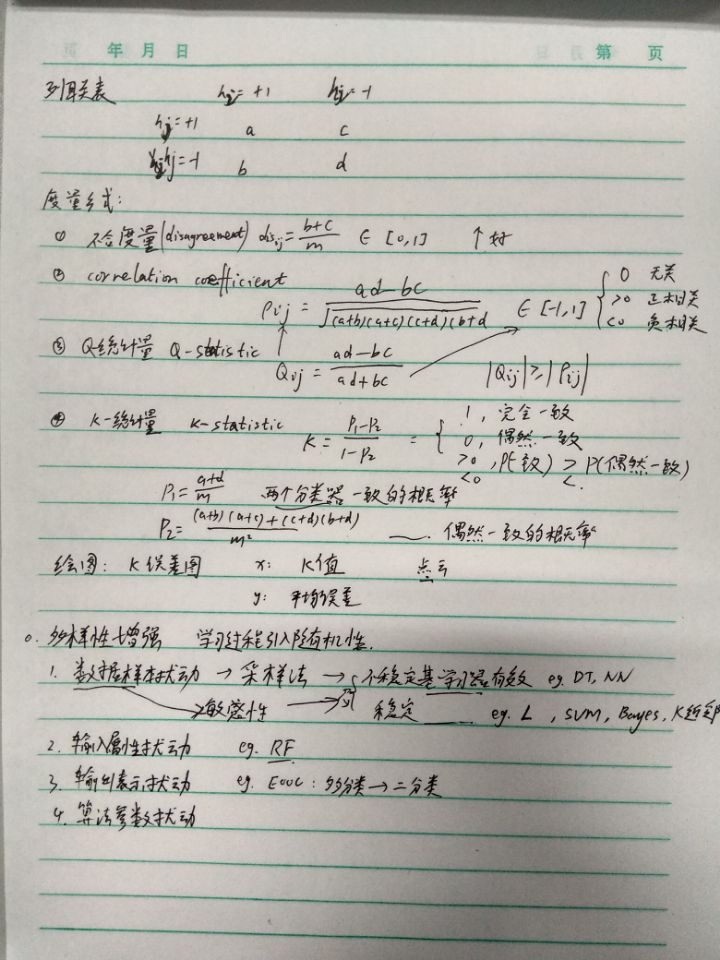 年 月 日 第 页
列联表 hi=+1 hi=-1
hj=+1 a c
hj=-1 b d
度量方式:
① 不合度量(disagreement) disij = (b+c)/m ∈ [0,1] ↑好
② correlation coefficient
ρij = (ad-bc)/√((a+b)(a+c)(c+d)(b+d) ∈ [-1,1] { 0 无关
>0 正相关
<0 负相关
③ Q-统计量 Q-statistic Qij = (ad-bc)/(ad+bc) |Qij| ≥ |ρij|
④ K-统计量 k-statistic K = (P1-P2)/(1-P2) = { 1, 完全一致
0, 偶然一致
>0 <0 , P(一致) > < P(偶然一致)
P1 = (a+d)/m 两个分类器一致的概率
P2 = ((a+b)(a+c)+(c+d)(b+d))/m² 偶然一致的概率
绘图: K误差图 x: K值 点云
y: 平均误差
多样性增强 学习过程引入随机性.
1. 数据样本扰动 → 采样法 → 不稳定基学习器有效 eg. DT, NN
敏感性 → 稳定 eg. L , SVM, Bayes, K近邻
2. 输入属性扰动 eg. RF
3. 输出表示扰动 eg. EOOC: 多分类→二分类
4. 算法参数扰动